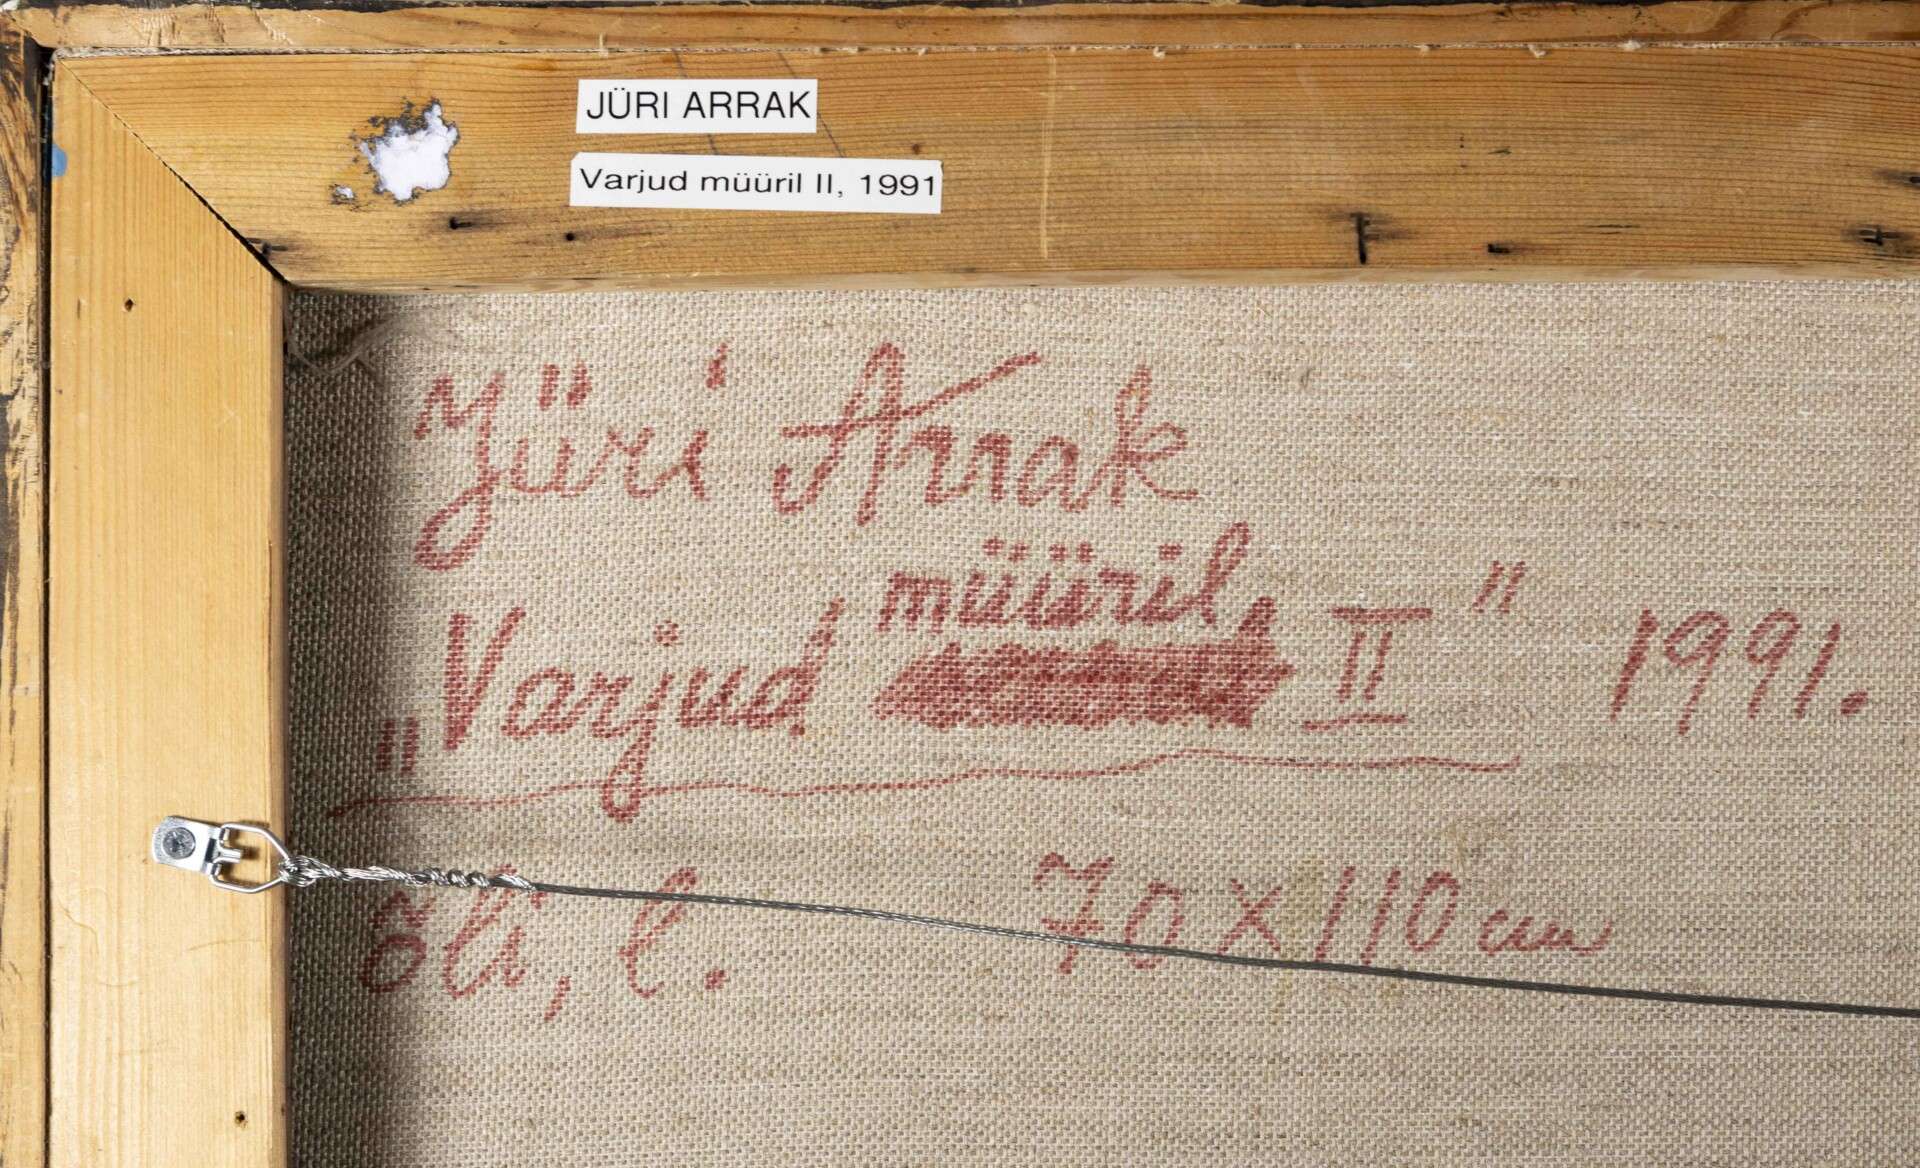 JÜRI ARRAK
Varjud müüril II, 1991
Jüri Arrak
müüril
„Varjud II" 1991.
õli, l. 70 x 110 cm